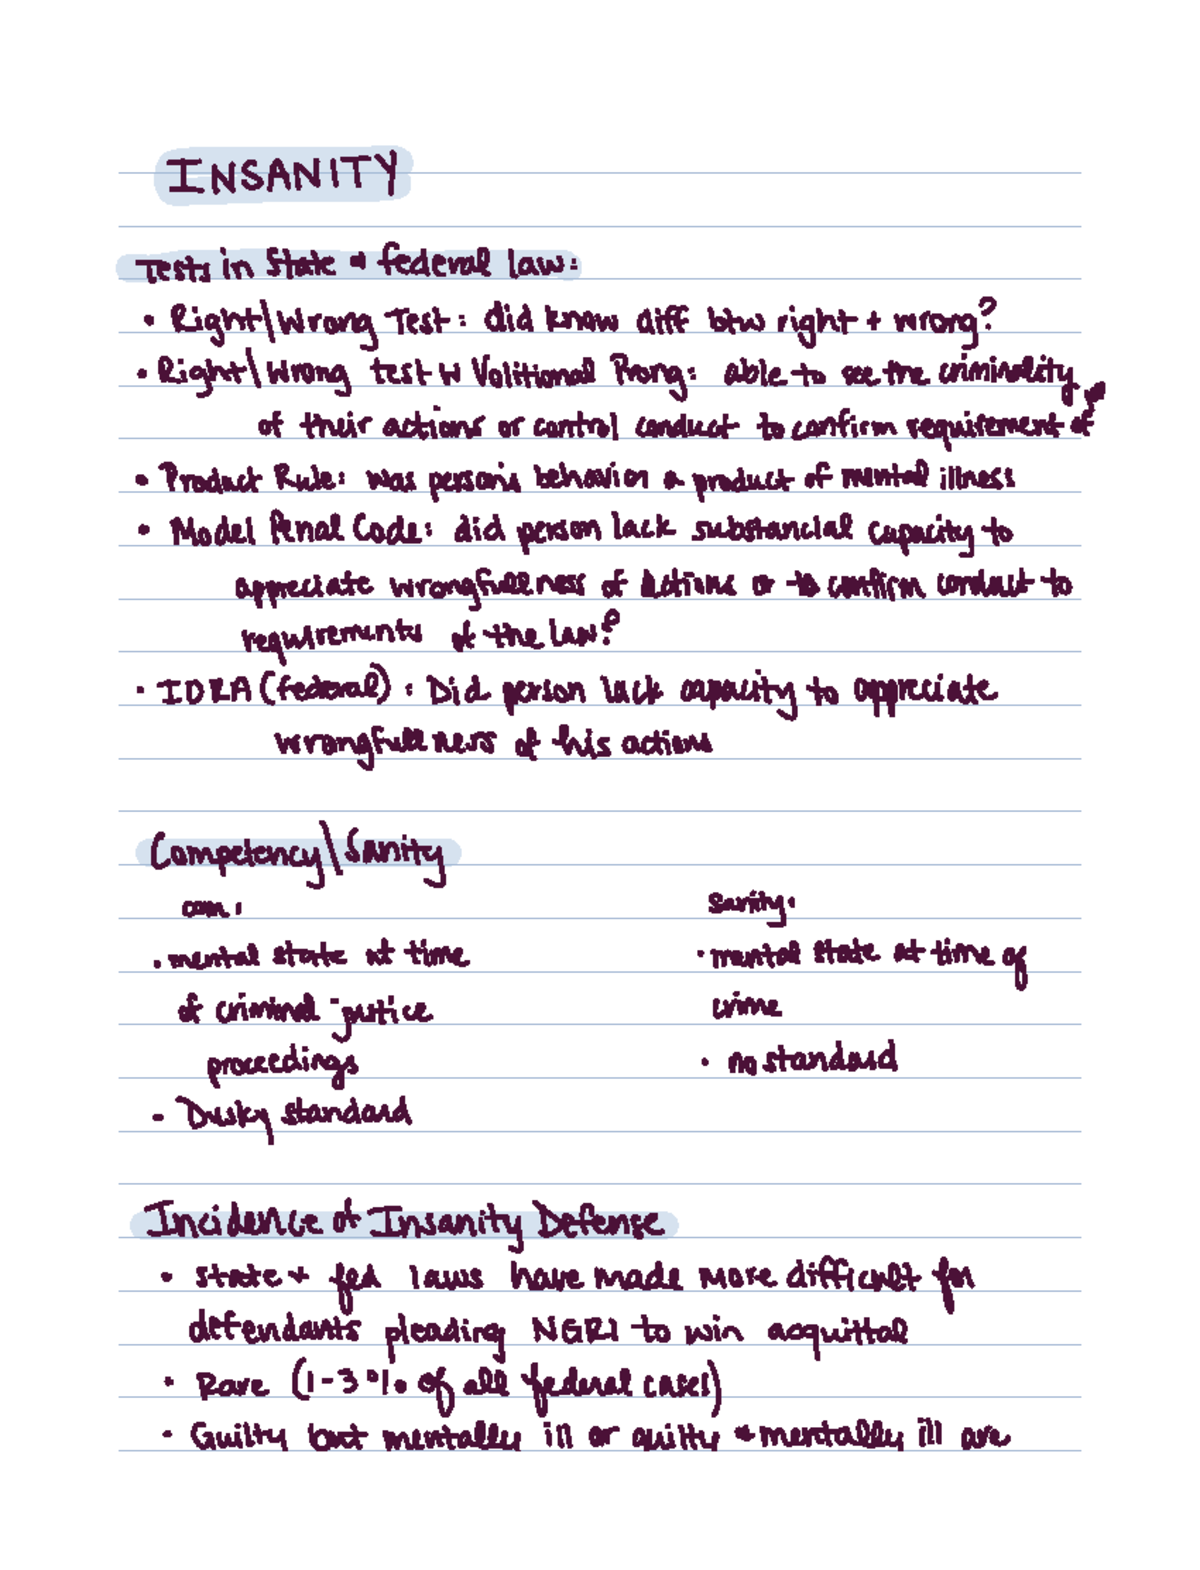 INSANITY
Tests in State & federal law:
• Right/Wrong Test: did know diff btw right + wrong?
• Right/Wrong test w Volitional Prong: able to see the criminality
of their actions or control conduct to confirm requirement of
• Product Rule: was person's behavior a product of mental illness
• Model Penal Code: did person lack substancial capacity to
appreciate wrongfullness of actions or to confirm conduct to
requirements of the law?
• IDRA (federal): Did person lack capacity to appreciate
wrongfullness of his actions
Competency/Sanity
com: sanity:
• mental state at time • mental state at time of
of criminal justice crime
proceedings • no standard
- Dusky standard
Incidence of Insanity Defense
• state + fed laws have made more difficult for
defendants pleading NGRI to win acquittal
• Rare (1-3% of all federal cases)
• Guilty but mentally ill or guilty & mentally ill are